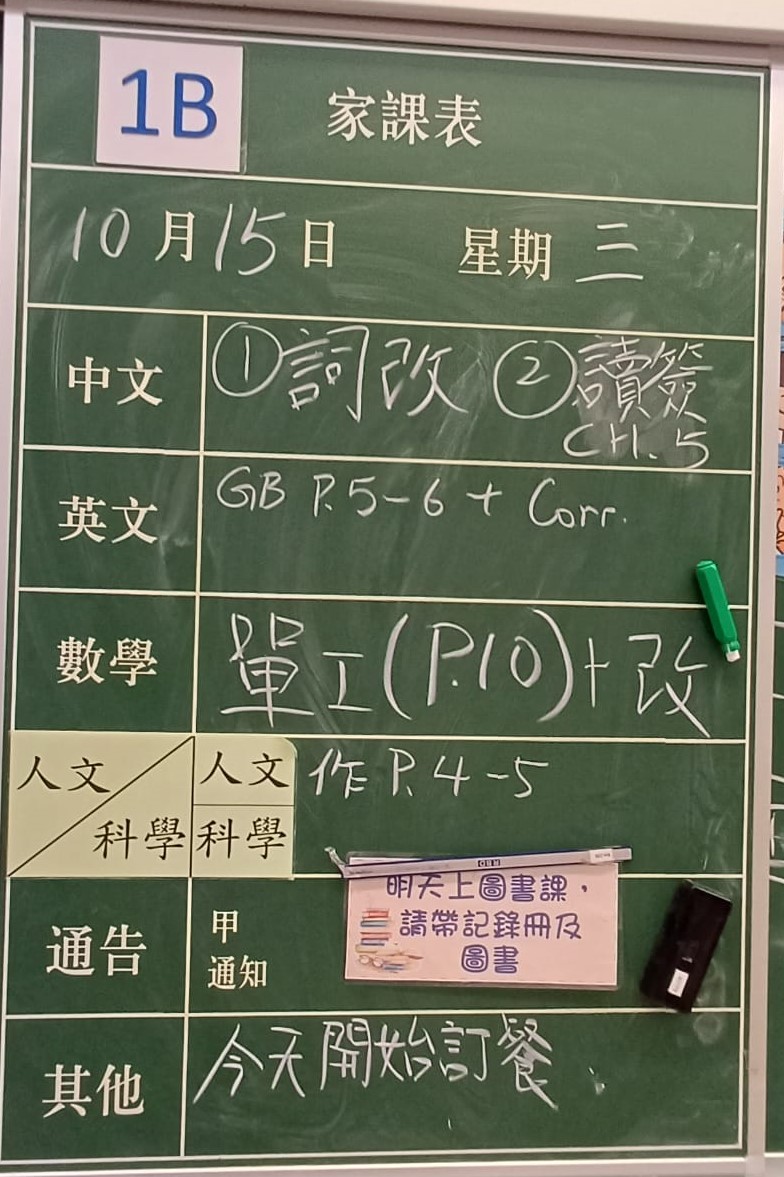 1B 家課表
10月15日 星期三
中文 ①詞改 ②讀簽
CH.5
英文 GB P.5-6 + Corr.
數學 單工(P.10)+改
人文 人文 作P.4-5
科學 科學
明天上圖書課，
通告 甲 請帶記錄冊及
通知 圖書
其他 今天開始訂餐